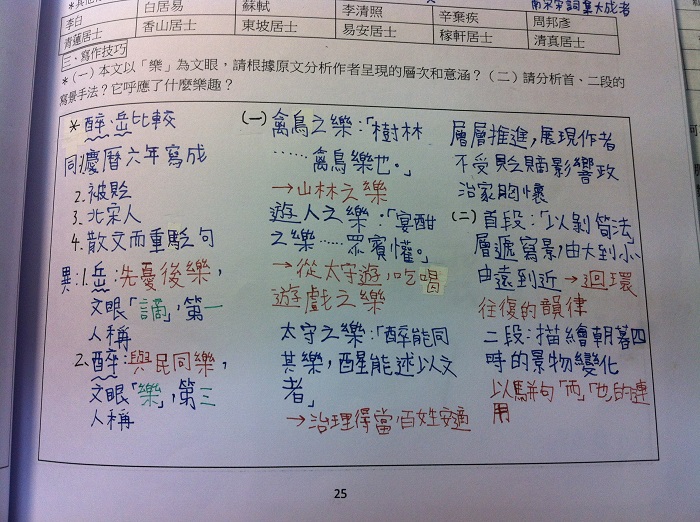 李白
白居易
蘇軾
李清照
辛棄疾
周邦彥
青蓮居士
香山居士
東坡居士
易安居士
稼軒居士
清真居士
三、寫作技巧
*(一)本文以「樂」為文眼,請根據原文分析作者呈現的層次和意涵?(二)請分析首、二段的
寫景手法?它呼應了什麼樂趣?
*醉、岳比較
同:慶曆六年寫成
2.被貶
3.北宋人
4.散文而重駢句
異:1.岳:先憂後樂,
文眼「謫」,第一
人稱
2.醉:與民同樂,
文眼「樂」,第三
人稱
(一)禽鳥之樂:「樹林
……禽鳥樂也。」
→山林之樂
遊人之樂:「宴酣
之樂……眾賓懽。」
→從太守遊,吃喝
遊戲之樂
太守之樂:「醉能同
其樂,醒能述以文
者」
→治理得當,百姓安適
層層推進,展現作者
不受貶謫影響政
治家胸懷
(二)首段:「以剝筍法」
層遞寫景,由大到小
由遠到近→迴環
往復的韻律
二段:描繪朝暮四
時的景物變化
以駢句「而」「也」的連
用
25